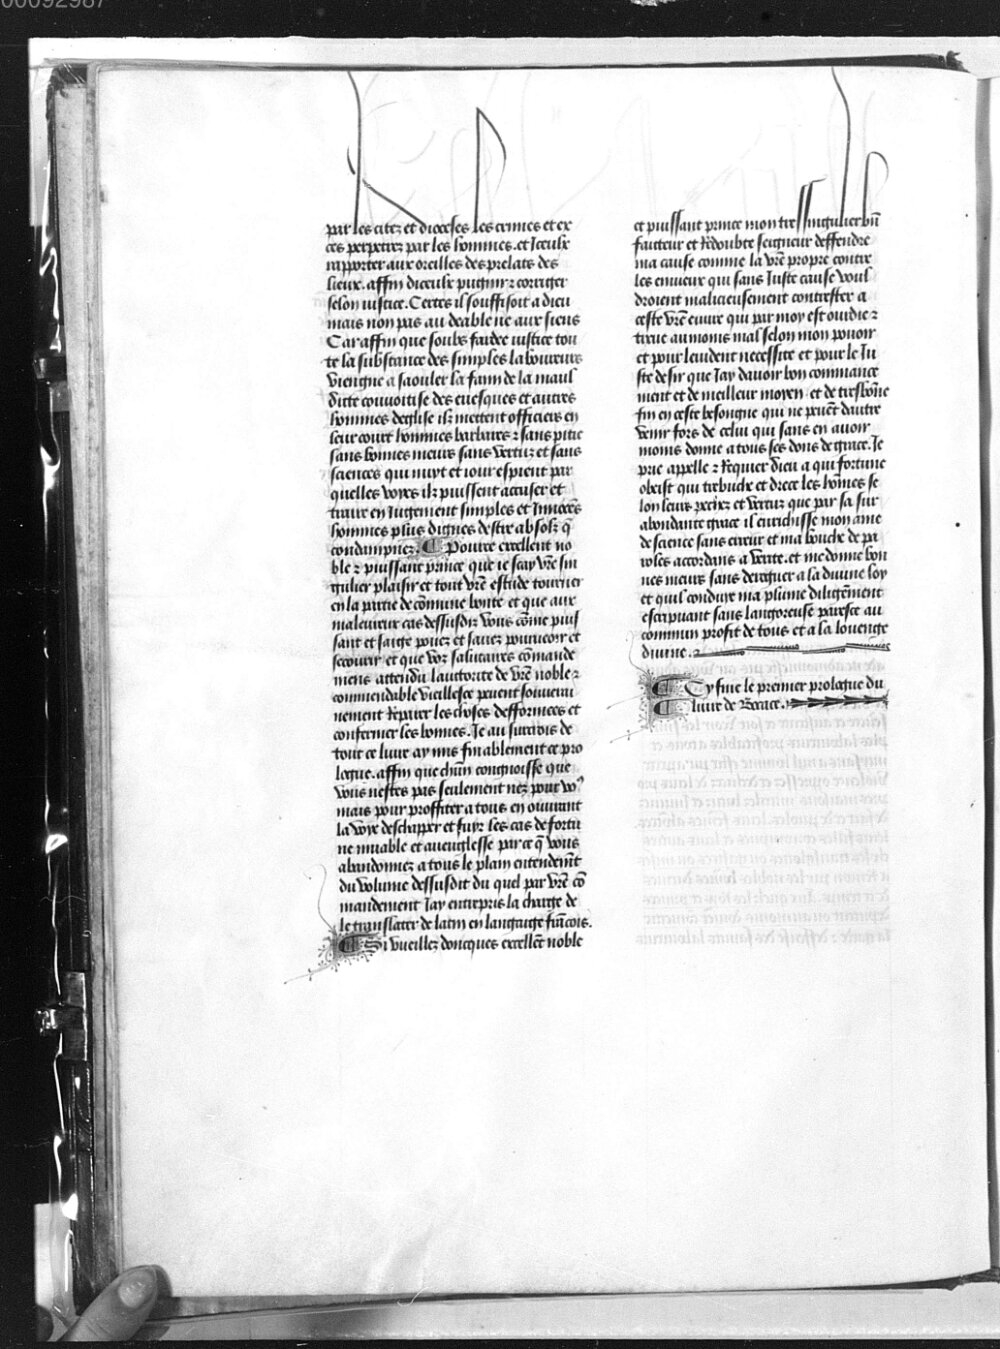 00092987
par les citez et dioceses les crimes et ex
ces perpetrez par les hommes. et Iceulx
rapporter aux oreilles des prelats des
lieux. affin diceulx pugnir ⁊ corriger
selon iustice. Certes il souffisoit a dieu
mais non pas au deable ne aux siens
Car affin que soubz fardee iustice tou
te la substance des simples laboureurs
viengne a saouler la faim de la maul
ditte couuoitise des euesques et autres
hommes deglise ilz mettent officiers en
leur court hommes barbares ⁊ sans pitie
sans bonnes meurs sans vertuz et sans
sciences qui nuyt et iour espient par
quelles voyes ilz puissent accuser et
traire en Iugement simples et Innocẽs
hommes plus dignes destre absolz q̃
condampnez. Pource excellent no
ble ⁊ puissant prince que ie scay vr̃e sin
gulier plaisir et tout vr̃e estude tourner
en la partie de cõmune bonte et que aux
maleureux cas dessusdiz vous cõme puis
sant et saige pouez et sauez pourueoir et
secourir et que voz salutaires cõmande
mens attendu lauctorite de vr̃e noble ⁊
commendable vieillesce peuent souuerai
nement Reparer les choses defformees et
confermer les bonnes. Je au surcrois de
tout ce liure ay mis finablement ce pro
logue. affin que chũn congnoisse que
vous nestes pas seulement nez pour vo⁹
mais pour proffiter a tous en ouurant
la voye deschapper et fuyr les cas de fortu
ne muable et aueuglesse par ce q̃ vous
abandonnez a tous le plain entendemt
du volume dessusdit du quel par vr̃e cõ
mandement Iay entrepris la charge de
le translater de latin en langaige frãcois.
Si vueillez doncques excellẽt noble
et puissant prince mon tressingulier biẽ
faicteur et Redoubte seigneur deffendre
ma cause comme la vr̃e propre contre
les enuieux qui sans Iuste cause voul
droient malicieusement contrester a
ceste vr̃e euure qui par moy est ouidie ⁊
tixue au moins mal selon mon pouoir
et pour leuident necessite et pour le Iu
ste desir que Iay dauoir bon commance
ment et de meilleur moyen et de tresbõne
fin en ceste besongne qui ne peuẽt dautre
venir fors de celui qui sans en auoir
moins donne a tous ses dons de grace. Je
prie appelle ⁊ Requier dieu a qui fortune
obeist qui trebuche et drece les hõmes se
lon leurs pechez et vertuz que par sa sur
abondante grace il enrichisse mon ame
de science sans erreur et ma bouche de pa
roles accordans a verite. et me donne bon
nes meurs sans deraguer a la diuine loy
et quil conduye ma plume diligẽment
escripuant sans langoreuse paresce au
commun profit de tous et a la louenge
diuine.
Cy fine le premier prologue du
liure de Bocace.